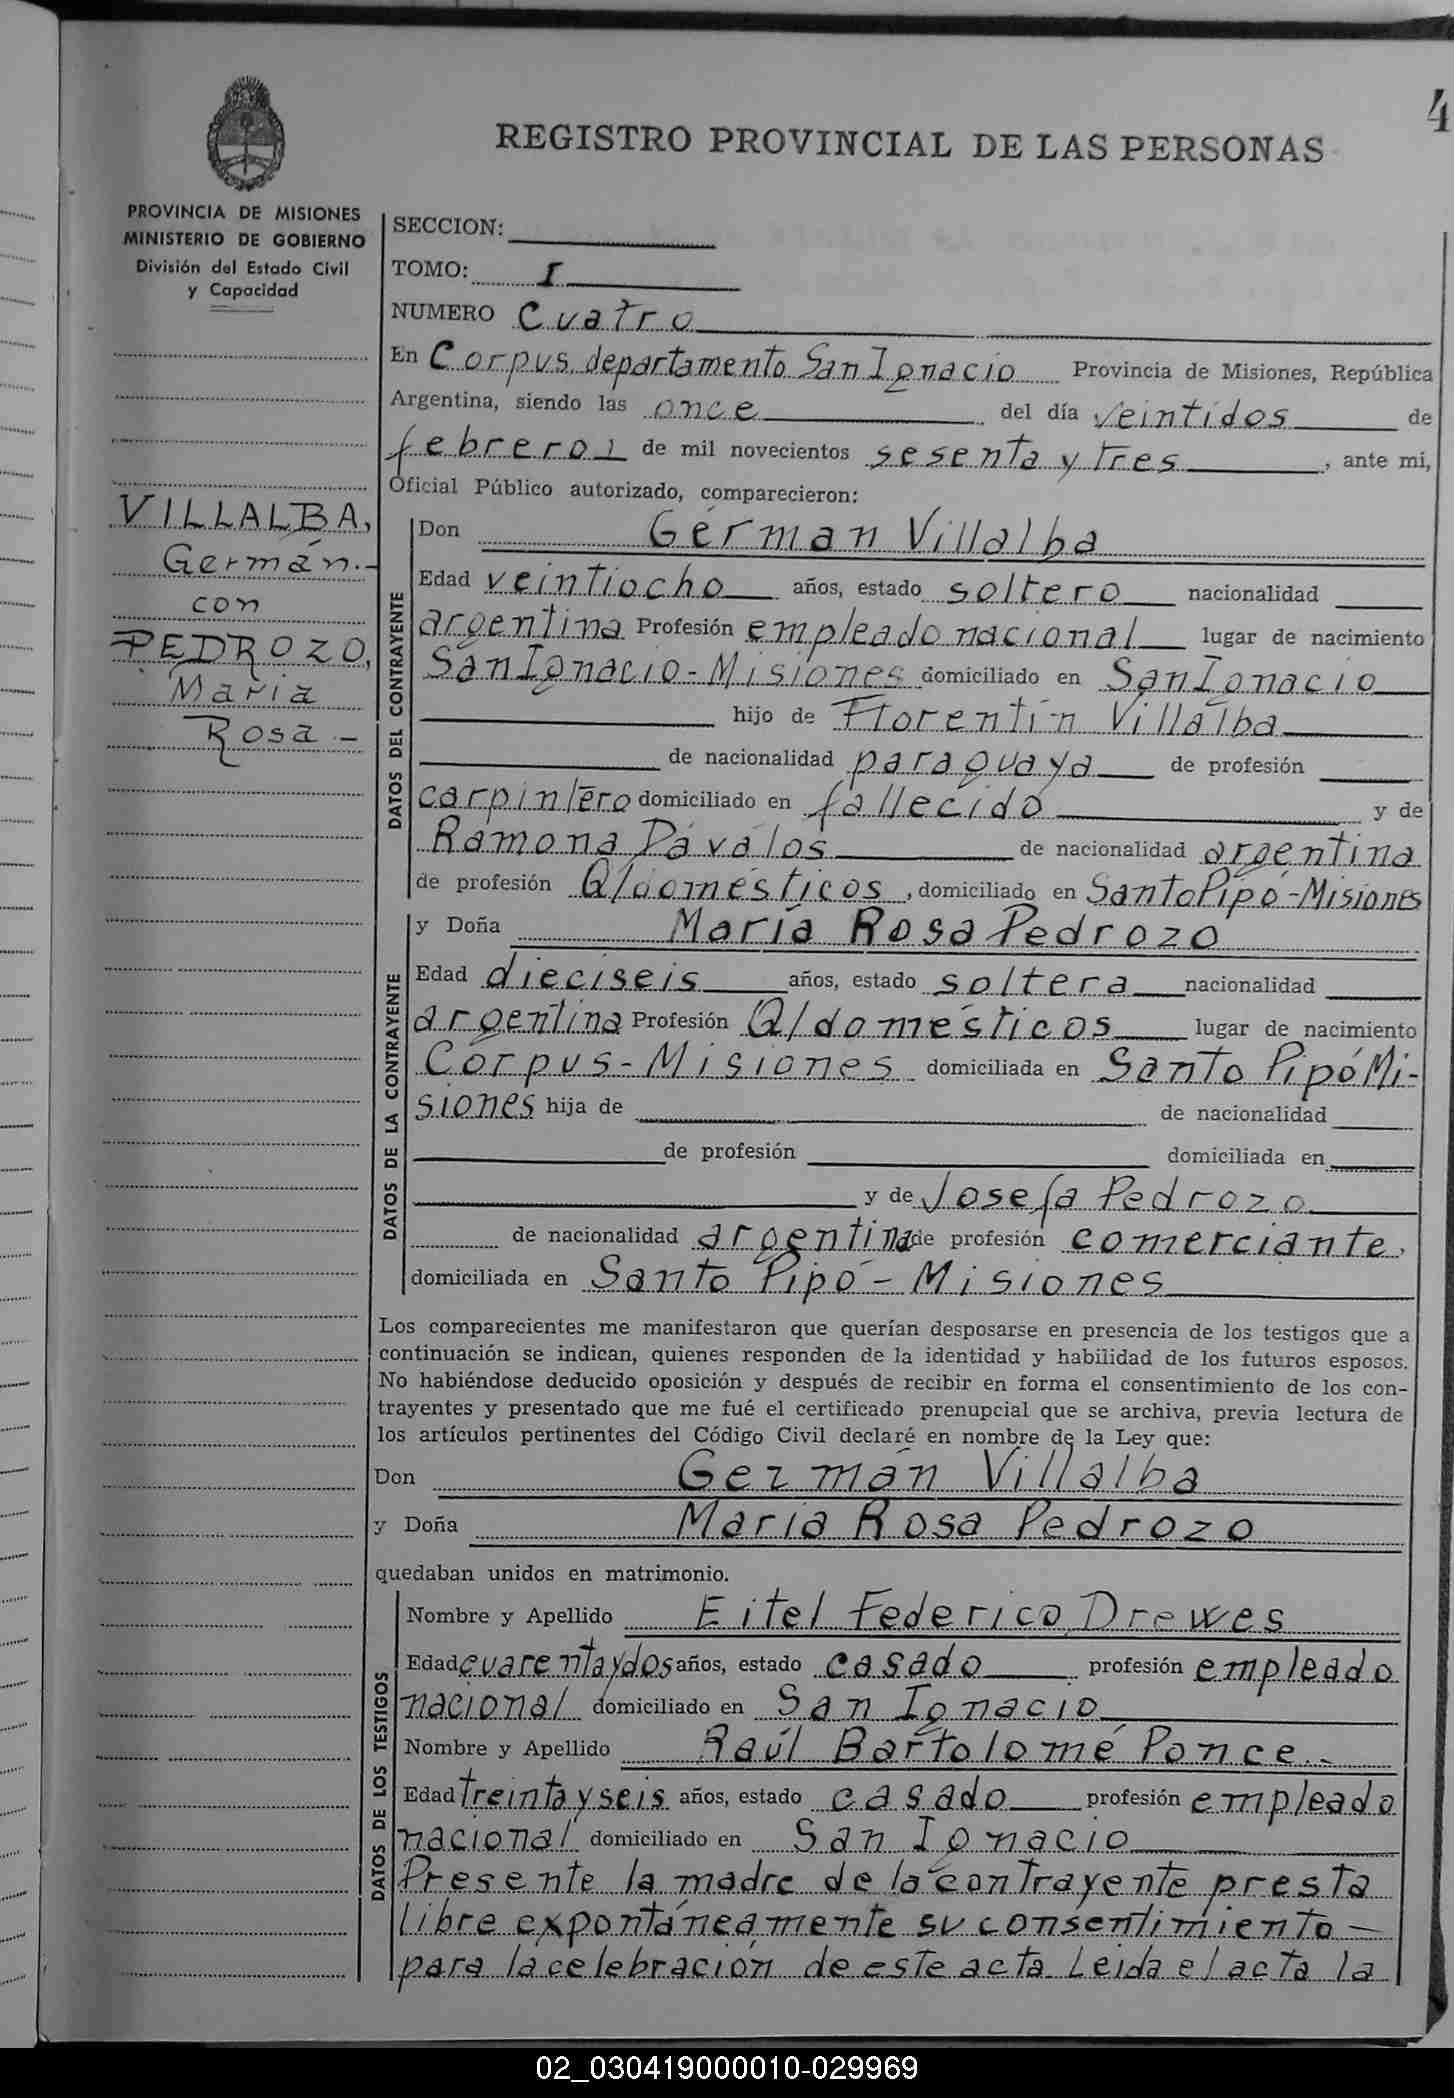 4
REGISTRO PROVINCIAL DE LAS PERSONAS
PROVINCIA DE MISIONES
MINISTERIO DE GOBIERNO
División del Estado Civil
y Capacidad
VILLALBA,
Germán.-
con
PEDROZO,
Maria
Rosa -
SECCION:
TOMO: I
NUMERO Cuatro
En Corpus, departamento San Ignacio Provincia de Misiones, República
Argentina, siendo las once del día veintidos de
febrero de mil novecientos sesenta y tres, ante mi,
Oficial Público autorizado, comparecieron:
DATOS DEL CONTRAYENTE
Don Gérman Villalba
Edad veintiocho años, estado soltero nacionalidad
argentina Profesión empleado nacional lugar de nacimiento
San Ignacio - Misiones domiciliado en San Ignacio
hijo de Florentín Villalba
de nacionalidad paraguaya de profesión
carpintero domiciliado en fallecido y de
Ramona Dávalos de nacionalidad argentina
de profesión Q/domésticos, domiciliado en Santo Pipó - Misiones
DATOS DE LA CONTRAYENTE
y Doña María Rosa Pedrozo
Edad dieciseis años, estado soltera nacionalidad
argentina Profesión Q/domésticos lugar de nacimiento
Corpus - Misiones domiciliada en Santo Pipó Mi-
siones hija de de nacionalidad
de profesión domiciliada en
y de Josefa Pedrozo
de nacionalidad argentina de profesión comerciante,
domiciliada en Santo Pipó - Misiones
Los comparecientes me manifestaron que querían desposarse en presencia de los testigos que a
continuación se indican, quienes responden de la identidad y habilidad de los futuros esposos.
No habiéndose deducido oposición y después de recibir en forma el consentimiento de los con-
trayentes y presentado que me fué el certificado prenupcial que se archiva, previa lectura de
los artículos pertinentes del Código Civil declaré en nombre de la Ley que:
Don Germán Villalba
y Doña María Rosa Pedrozo
quedaban unidos en matrimonio.
DATOS DE LOS TESTIGOS
Nombre y Apellido Eitel Federico Drewes
Edad cuarenta y dos años, estado casado profesión empleado
nacional domiciliado en San Ignacio
Nombre y Apellido Raúl Bartolomé Ponce.-
Edad treinta y seis años, estado casado profesión empleado
nacional domiciliado en San Ignacio
Presente la madre de la contrayente presta
libre expontáneamente su consentimiento -
para la celebración de este acta. Leida el acta la
02_030419000010-029969